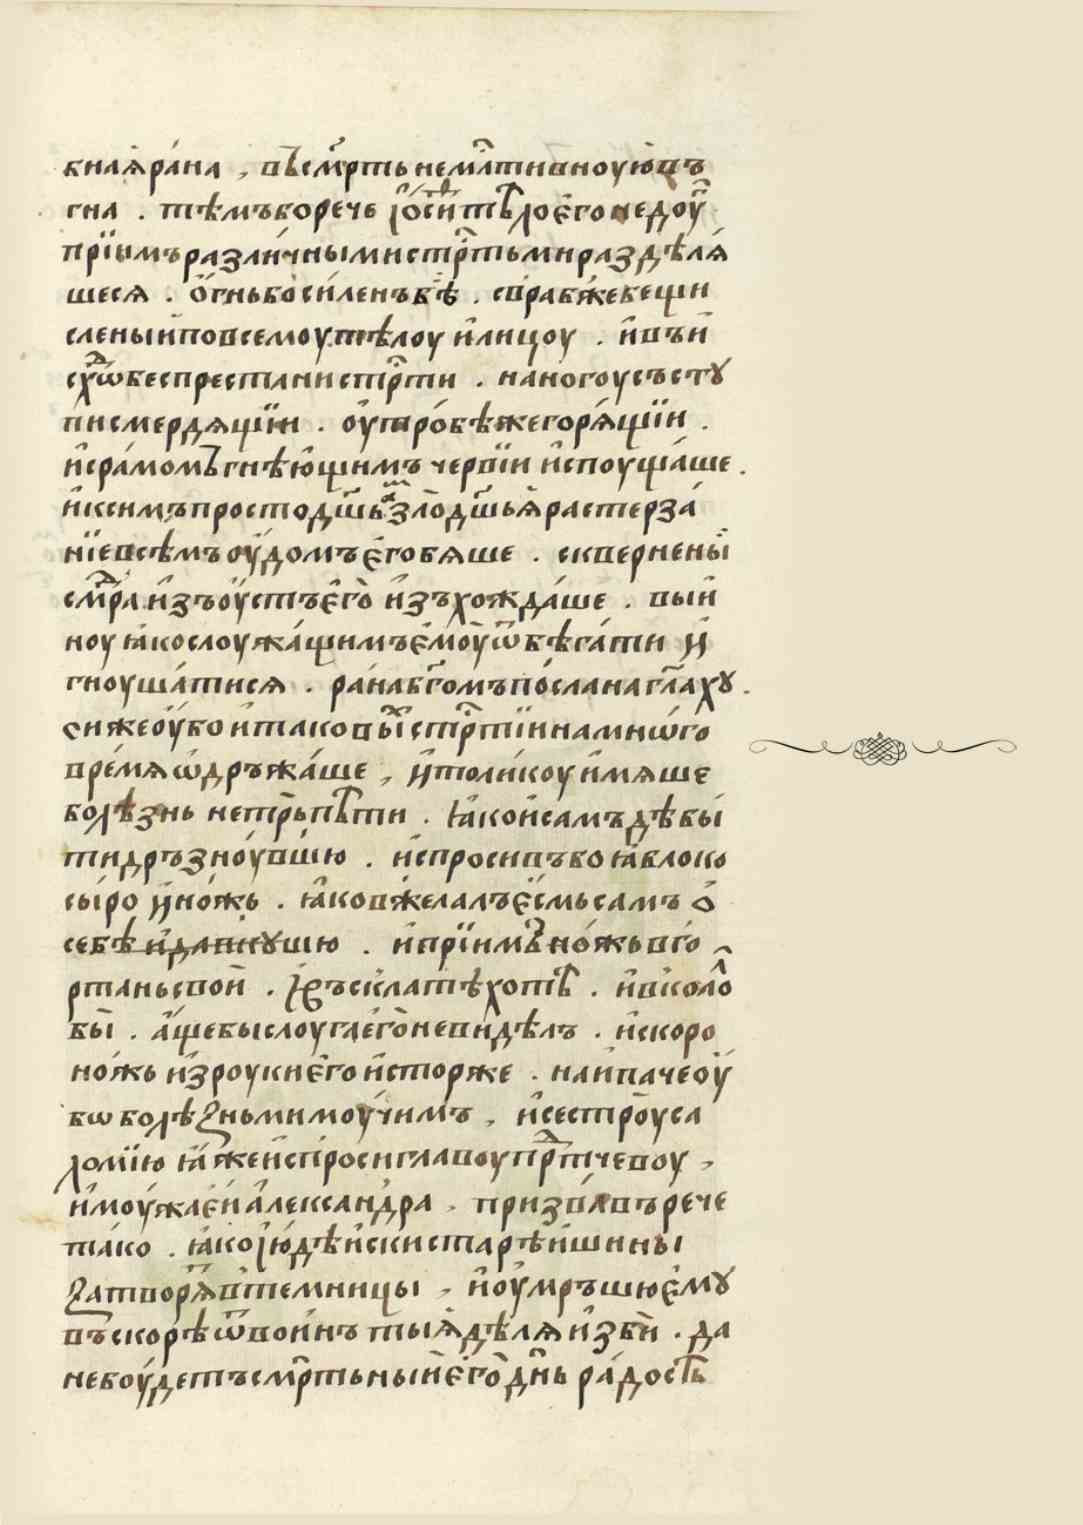 бнаꙗ ра́на , въсмр҃ть не мл҃тивноую въ
гна . тѣмъ бо рече іѡ҆си тѣло є҆го недоуг
прїимъ разли́чными стр҃тьми раздѣлѧ́
шесѧ . ѻ҆гнь бо си́ленъ бѣ . сврабже бещи
сленыи по всемоу тѣлоу и҆ лицоу . и҆ въ и
сх҃ѡ беспрестани стр҃ти . на ногоу състу
пи смердѧщїи . оу҆тро́бѣже горѧ́щїи .
и҆ сра́момъ гнѣю҆щимъ червїи и҆споуща́ше .
и҆ ксимъ просто дш҃ьа злодш҃ьꙗ растерза́
нїе всѣмъ оу҆домъ є҆го бѧше . скверненыи
смра и҆зъ оу҆стъ є҆го̀ и҆зъхожда́ше . выи
ноу ꙗ҆ко слоужа́щимъ є҆моу ѿбѣга́ти и҆
гноуша́тисѧ . ра́на бг҃омъ по́слана гл҃ахꙋ .
сиже оу҆бо и҆ таковыⷯ стр҃тїи на мнѡ́го
вре́мѧ ѡ҆држа́ше , и҆ толи́коу и҆мѧше
болѣзнь нетрьпѣти . ꙗ҆ко и самъ дѣбы
ти дръзноу́вшю . и҆спросивъ бо ꙗ҆блоко
сы́ро и҆ но́жь . ꙗ҆ко вжелалъ є҆смь самъ ѻ҆
себѣ и҆ давнꙋшю . и҆ прїимъ но́жь в го
ртань свои . іꙋсъскла тѣ хотѣ . и҆ вколол
бы . а҆ще бы слоуга є҆го̀ не видѣлъ . и҆ скоро
ножь и҆з роуки є҆го и҆сторже . наи паче оу҆
бѡ болѣꙁньми моу́чимъ , и҆ сестроу са
ломїю ꙗ҆же и҆спроси главоу прⷣтчевоу ,
и҆ моу́жа є҆и а҆леꙁандра , призва́въ рече
та́ко . ꙗ҆ко і҆ю҆дѣи҆ски старѣи҆шины
ꙁатворѧ в темницы , и҆ оу҆мръшю є҆мꙋ
въскорѣ ѿ вои҆нъ тыꙗ дѣлѧ и҆зби . да
не боу́детъ смр҃тьныи є҆го̀ дн҃ь ра́дость